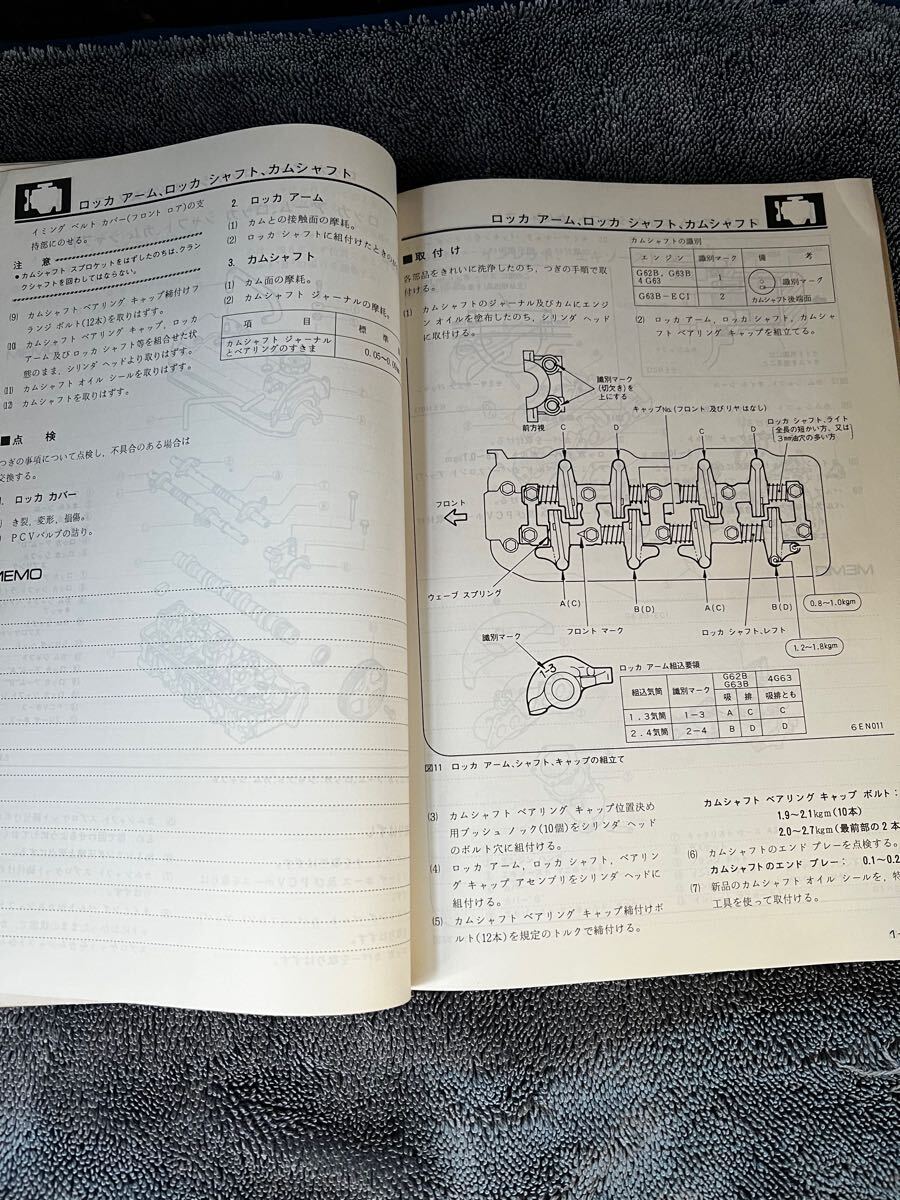 ロッカ アーム、ロッカ シャフト、カムシャフト
イミング ベルト カバー(フロント ロア)の支
持部にのせる。
注 意
●カムシャフト スプロケットをはずしたのちは、クラン
クシャフトを回わしてはならない。
(9) カムシャフト ベアリング キャップ締付けフ
ランジ ボルト(12本)を取りはずす。
(10) カムシャフト ベアリング キャップ、ロッカ
アーム 及び ロッカ シャフト等を組合せた状
態のまま、シリンダ ヘッドより取りはずす。
(11) カムシャフト オイル シールを取りはずす。
(12) カムシャフトを取りはずす。
■点 検
つぎの事項について点検し、不具合のある場合は
交換する。
1. ロッカ カバー
き裂、変形、損傷。
PCVバルブの詰り。
MEMO
2. ロッカ アーム
(1) カムとの接触面の摩耗。
(2) ロッカ シャフトに組付けたときの
3. カムシャフト
(1) カム面の摩耗。
(2) カムシャフト ジャーナルの摩耗。
項 目 標 準
カムシャフト ジャーナル
とベアリングのすきま
0.05〜0.09
ロッカ アーム、ロッカ シャフト、カムシャフト
■取付け
各部品をきれいに洗浄したのち、つぎの手順で取
付ける。
(1) カムシャフトのジャーナル及びカムにエンジ
ン オイルを塗布したのち、シリンダ ヘッド
に取付ける。
カムシャフトの識別
エ ン ジ ン 識別マーク 備 考
G62B, G63B
4G63
1
G63B−ECI 2
識別マーク
カムシャフト後端面
(2) ロッカ アーム、ロッカ シャフト、カムシャ
フト ベアリング キャップを組立てる。
識別マーク
(切欠き)を
上にする
前方視
キャップNo.(フロント 及び リヤ はなし)
ロッカ シャフト、ライト
全長の短かい方、又は
3㎜油穴の多い方
C D C D
フロント
ウェーブ スプリング
A(C) B(D) A(C) B(D)
0.8〜1.0kgm
フロント マーク
ロッカ シャフト、レフト
1.2〜1.8kgm
識別マーク
1-3
ロッカ アーム組込要領
組込気筒 識別マーク G62B G63B 4G63
吸 排 吸排とも
1.3気筒 1−3 A C C
2.4気筒 2−4 B D D
6EN011
図11 ロッカ アーム、シャフト、キャップの組立て
(3) カムシャフト ベアリング キャップ位置決め
用ブッシュ ノック(10個)をシリンダ ヘッド
のボルト穴に組付ける。
(4) ロッカ アーム、ロッカ シャフト、ベアリン
グ キャップ アセンブリをシリンダ ヘッドに
組付ける。
(5) カムシャフト ベアリング キャップ締付けボ
ルト(12本)を規定のトルクで締付ける。
カムシャフト ベアリング キャップ ボルト:
1.9〜2.1kgm(10本)
2.0〜2.7kgm(最前部の2本
(6) カムシャフトのエンド プレーを点検する。
カムシャフトのエンド プレー: 0.1〜0.2
(7) 新品のカムシャフト オイル シールを、特
工具を使って取付ける。